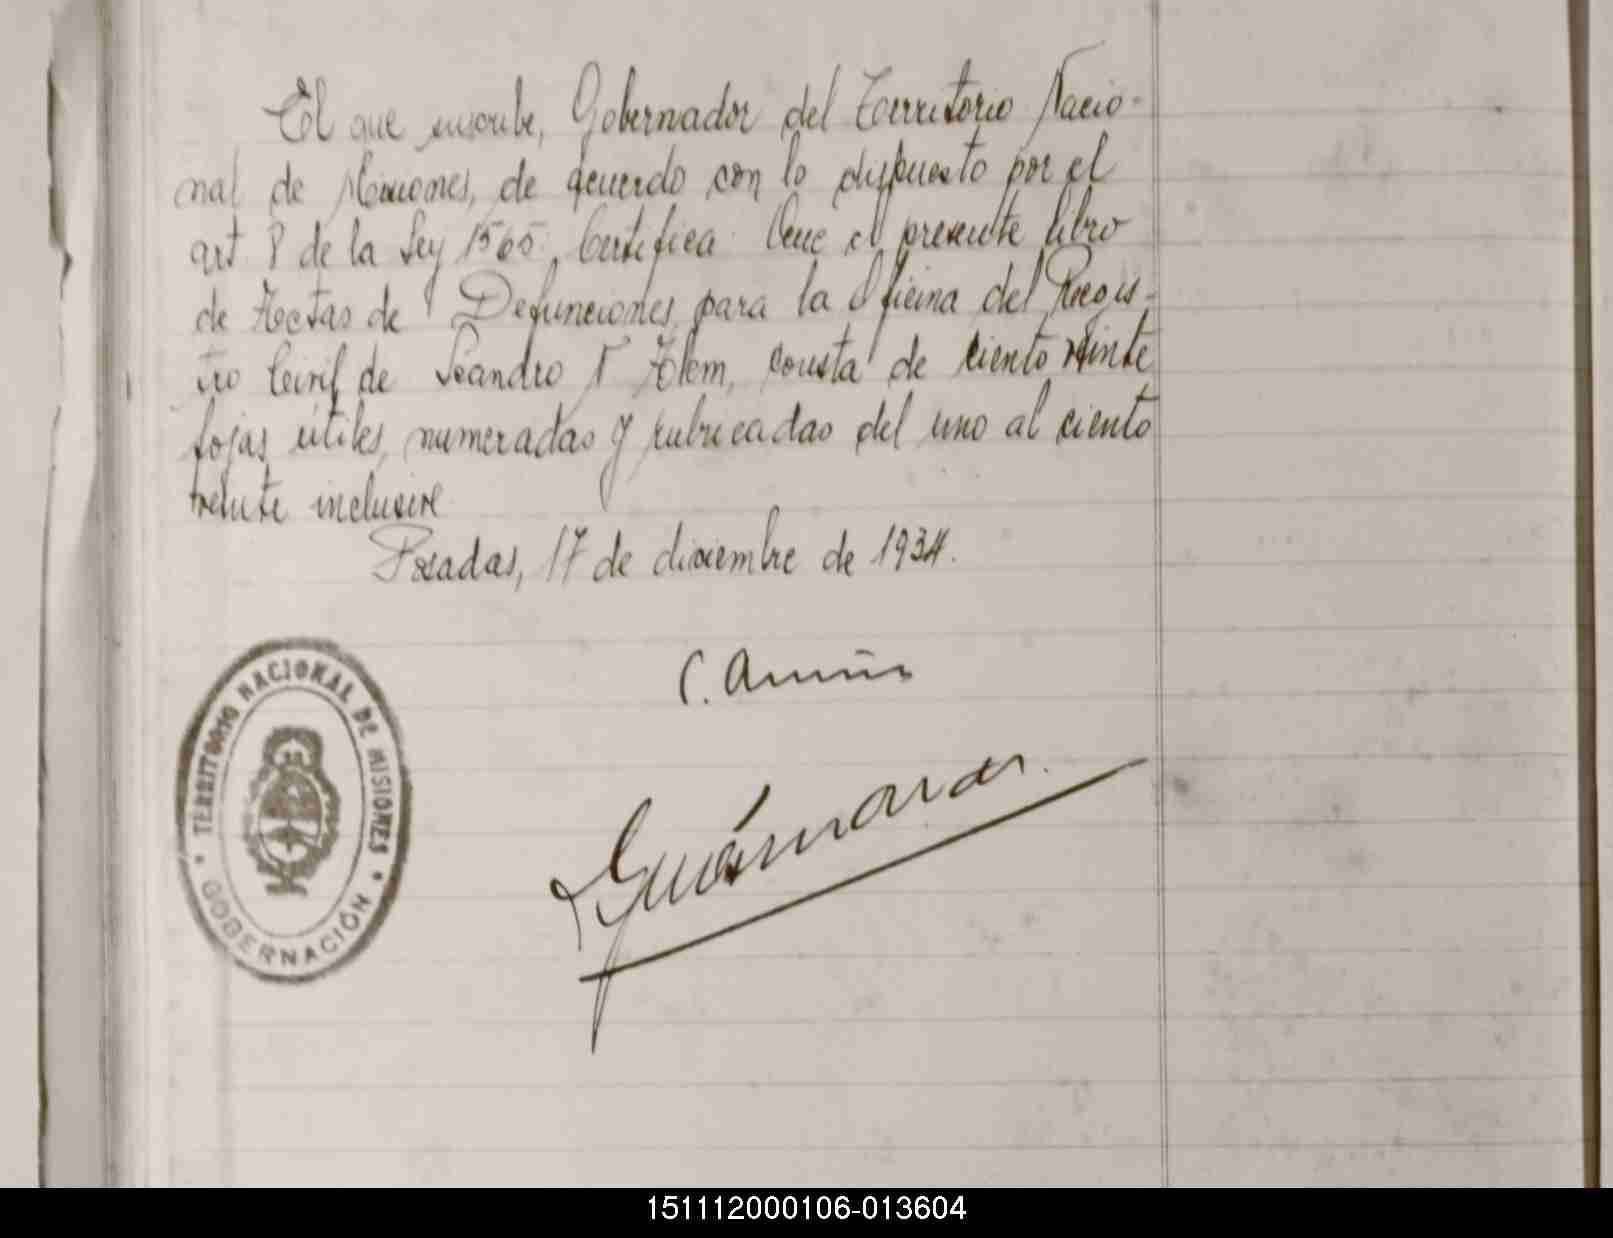 El que suscribe, Gobernador del Territorio Nacio-
nal de Misiones, de acuerdo con lo dispuesto por el
art 8 de la Ley 1565, Certifica: Que el presente libro
de Actas de Defunciones, para la Oficina del Regis-
tro Civil de Leandro N Alem, consta de ciento veinte
fojas útiles, numeradas y rubricadas del uno al ciento
veinte inclusive
Posadas, 17 de diciembre de 1934.
C.
TERRITORIO NACIONAL DE MISIONES
GOBERNACIÓN
151112000106-013604